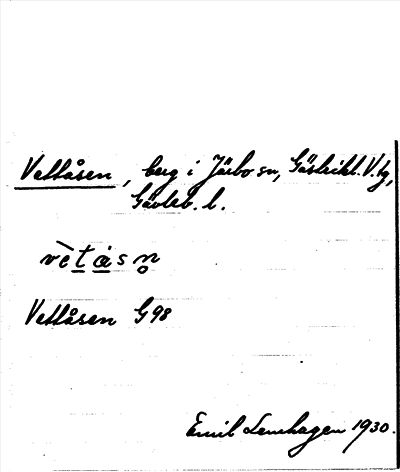 Vettåsen, berg i Järbo sn, Gästrikl. V. tg,
Gävleb. l.
vètåsn̥
Vettåsen G98
Emil Lenhagen 1930.